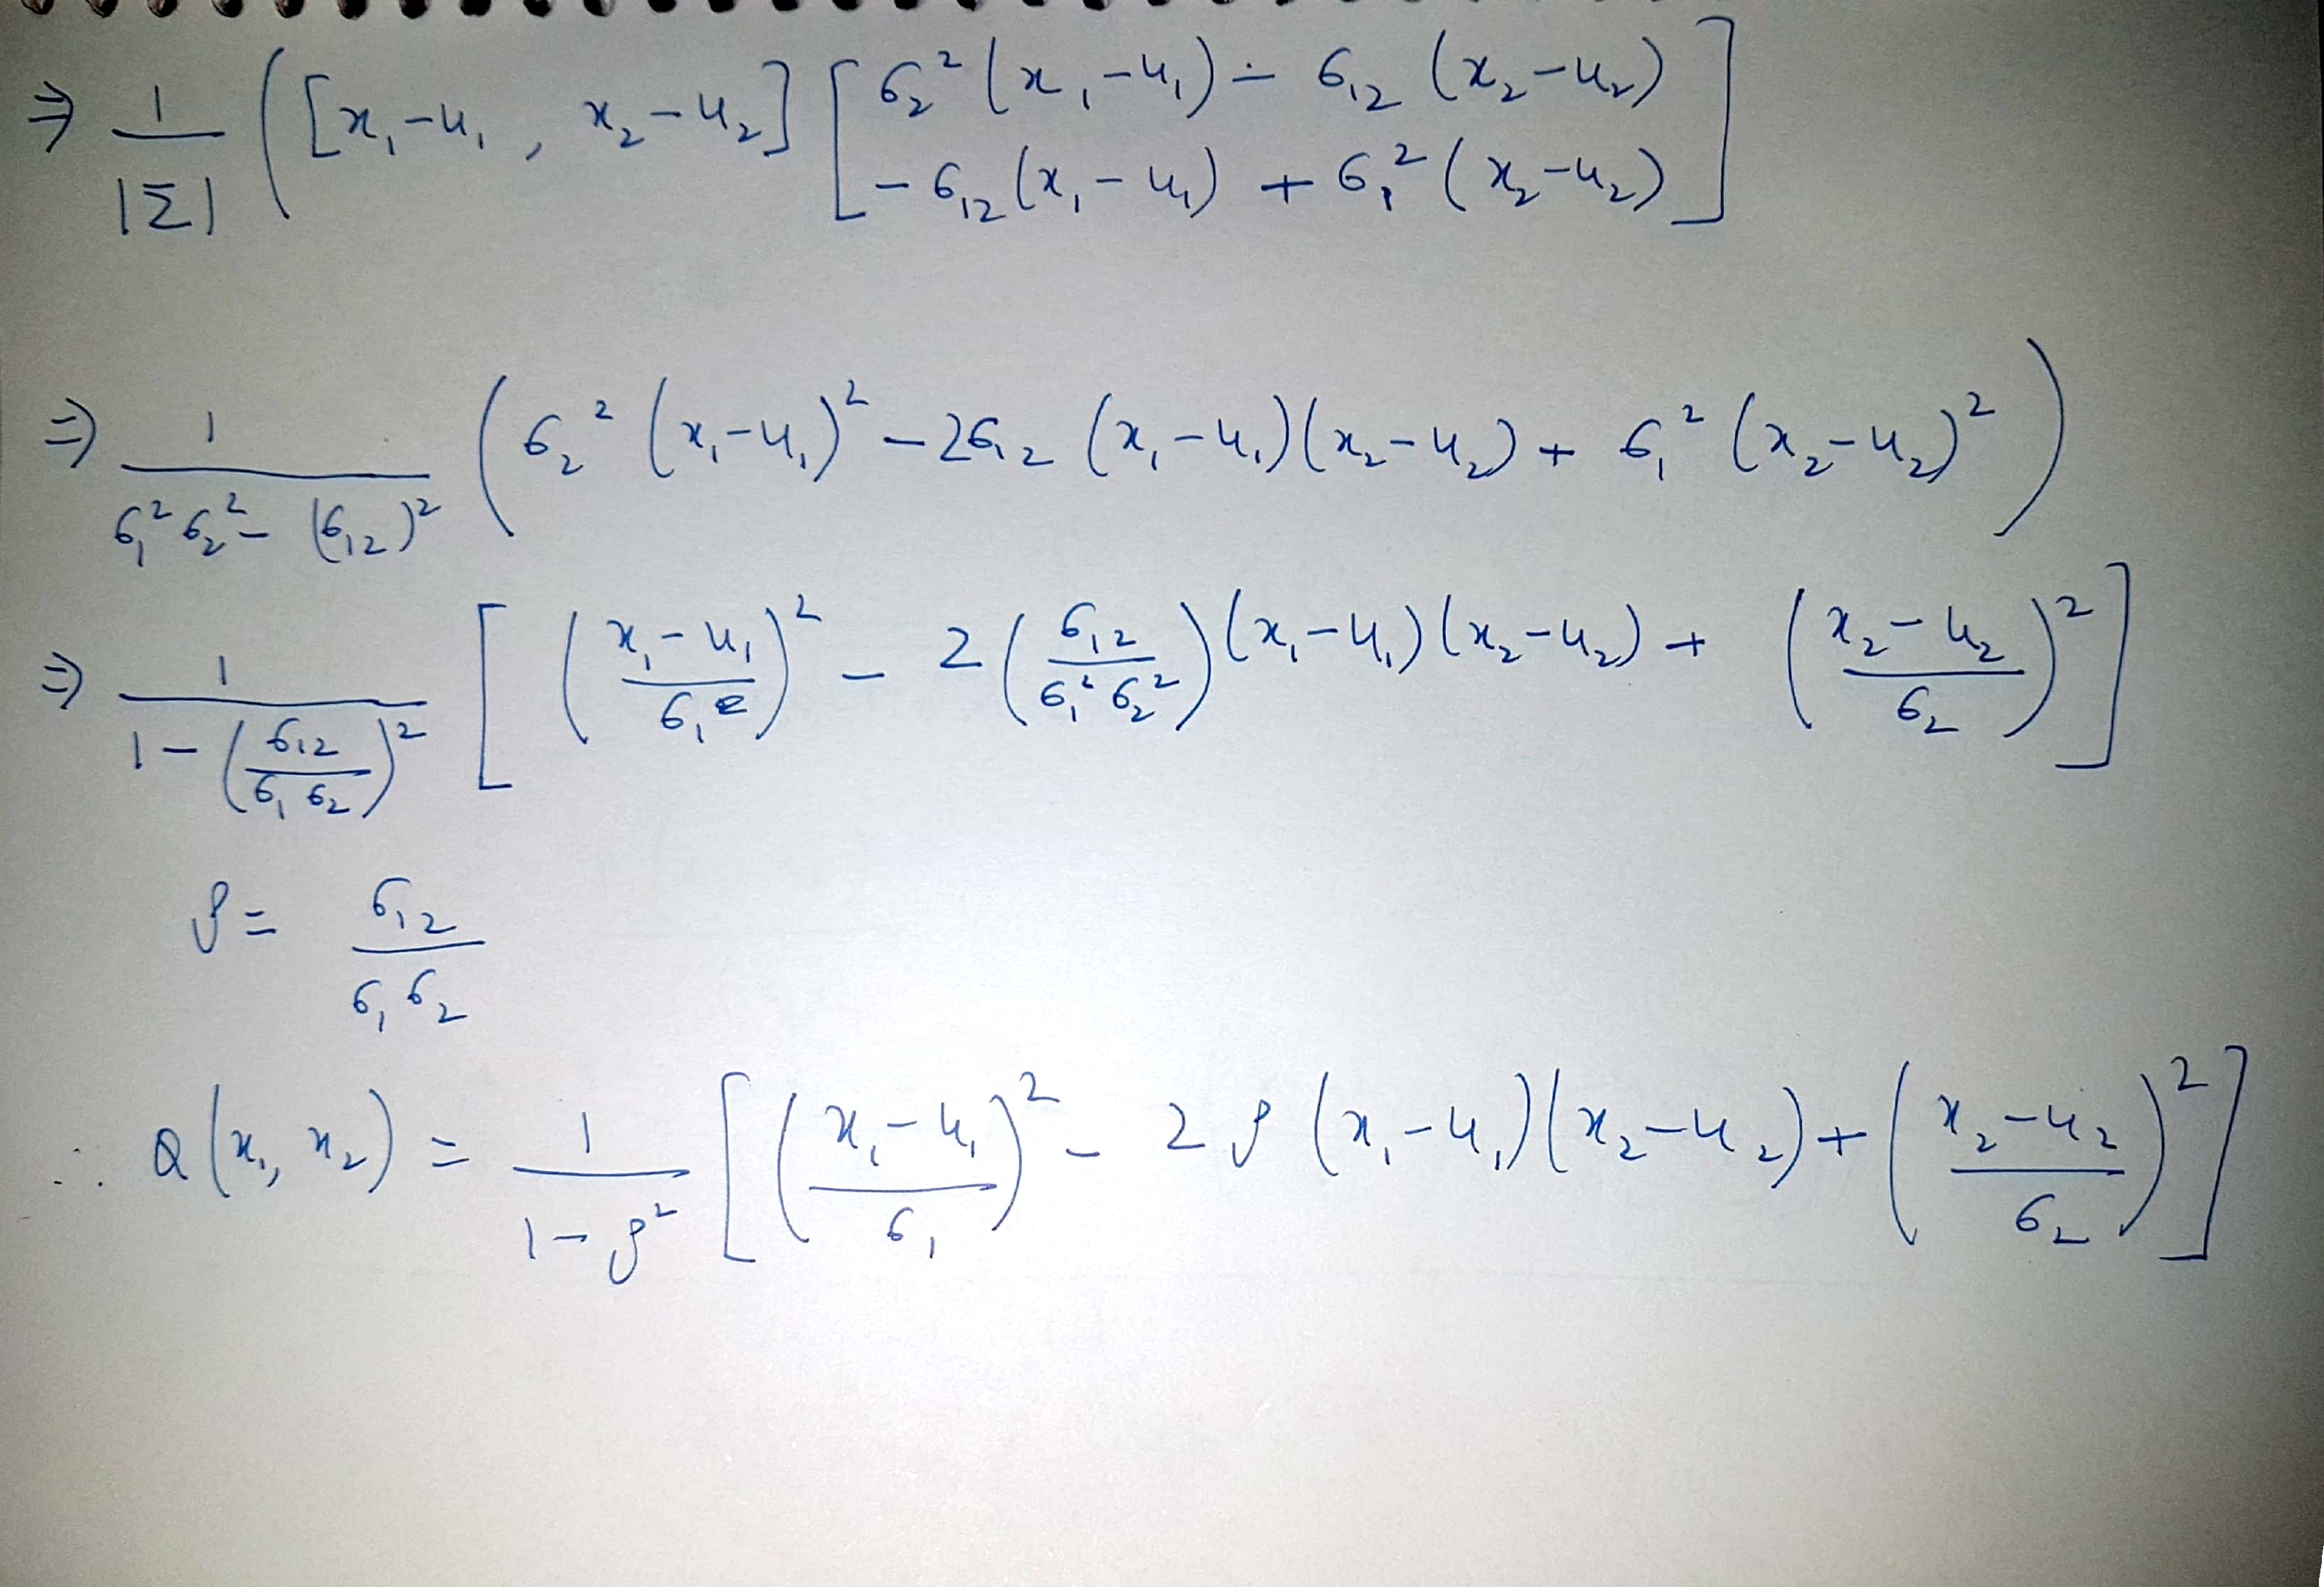 ⇒ 1/|Σ| ( [x₁-u₁, x₂-u₂] [ σ₂² (x₁-u₁) - σ₁₂ (x₂-u₂)
-σ₁₂ (x₁-u₁) + σ₁² (x₂-u₂) ]
⇒ 1/(σ₁² σ₂² - (σ₁₂)²) ( σ₂² (x₁-u₁)² - 2σ₁₂ (x₁-u₁)(x₂-u₂) + σ₁² (x₂-u₂)² )
⇒ 1/(1-(σ₁₂/(σ₁ σ₂))²) [ ((x₁-u₁)/σ₁)² - 2 (σ₁₂/(σ₁² σ₂²)) (x₁-u₁)(x₂-u₂) + ((x₂-u₂)/σ₂)² ]
ρ = σ₁₂/(σ₁ σ₂)
∴ Q(x₁, x₂) = 1/(1-ρ²) [ ((x₁-u₁)/σ₁)² - 2 ρ (x₁-u₁)(x₂-u₂) + ((x₂-u₂)/σ₂)² ]